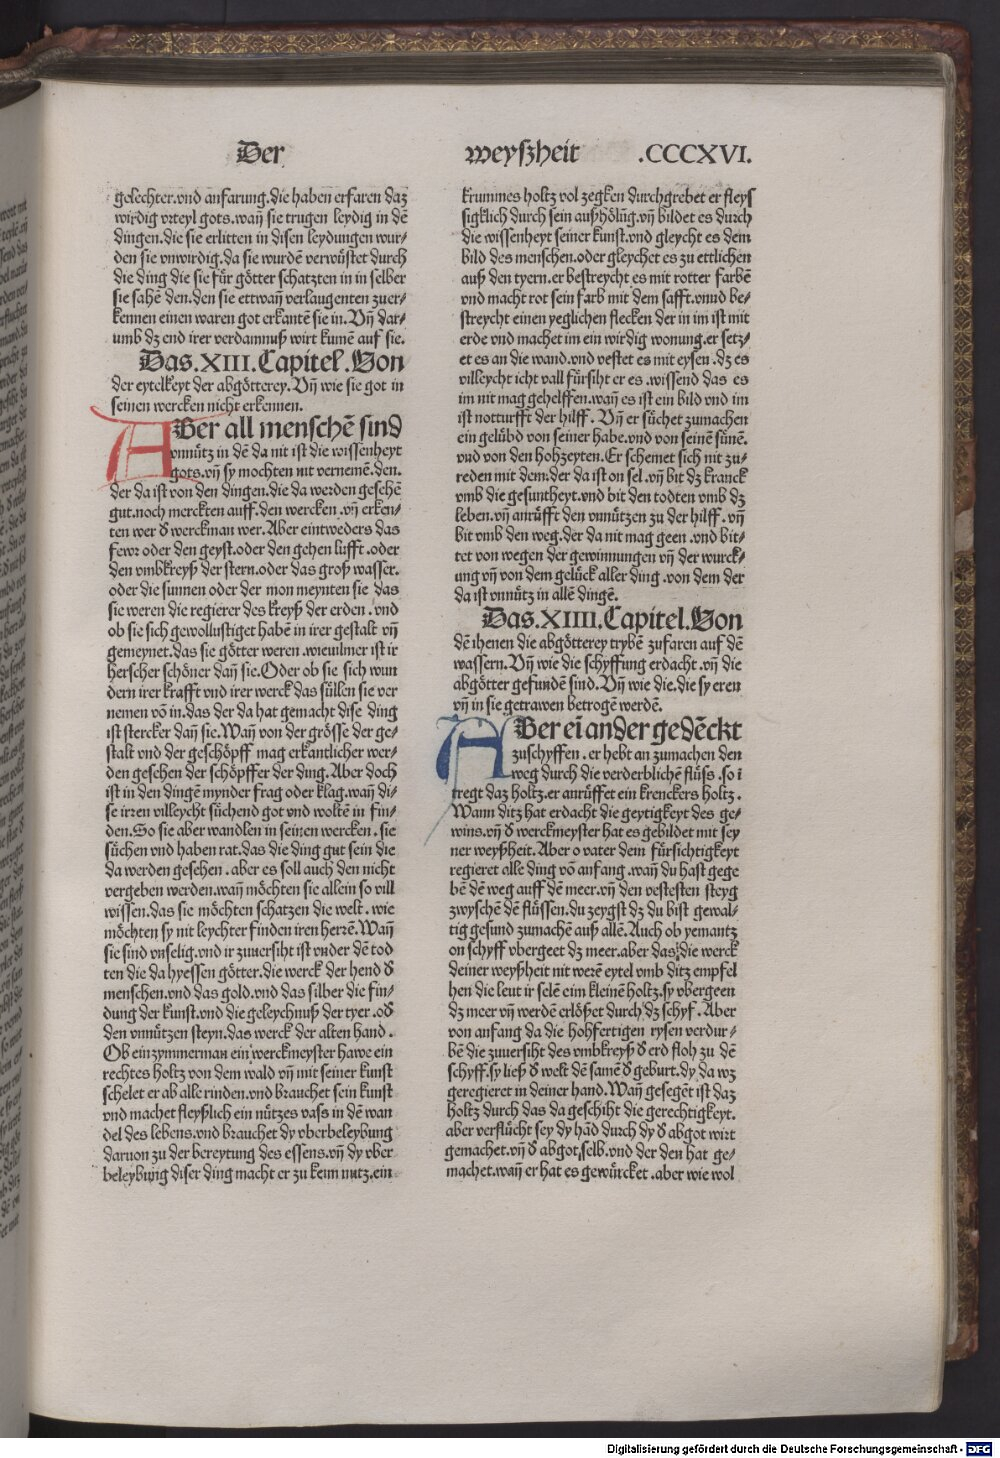 Der
weyßheit .CCCXVI.
gelechter.vnd anfarung.die haben erfaren daz
wirdig vrteyl gots.wañ sie trugen leydig in dē
dingen.die sie erlitten in disen leydungen wur-
den sie vnwirdig.da sie wurdē verwüstet durch
die ding die sie für götter schatzten in in selber
sie sahē den.den sie ettwañ verlaugenten zuer-
kennen einen waren got erkantē sie in.Vñ dar-
umb dz end irer verdamnuß wirt kumē auf sie.
Das.XIII.Capitel.Von
der eytelkeyt der abgötterey.Vñ wie sie got in
seinen wercken nicht erkennen.
ABer all menschē sind
vnnütz in dē da nit ist die wissenheyt
gots.vñ sy mochten nit vernemē.den.
der da ist von den dingen.die da werden geschē
gut.noch merckten auff.den wercken.vñ erken-
ten wer d̄ werckman wer.Aber eintweders das
fewr oder den geyst.oder den gehen lufft.oder
den vmbkreyß der stern.oder das groß wasser.
oder die sunnen oder der mon meynten sie das
sie weren die regierer des kreyß der erden.vnd
ob sie sich gewollustiget habē in irer gestalt vñ
gemeynet.das sie götter weren.wieuilmer ist ir
herscher schöner dañ sie.Oder ob sie sich wun
dern irer krafft vnd irer werck das süllen sie ver
nemen vō in.das der da hat gemacht dise ding
ist stercker dañ sie.Wañ von der grösse der ge-
stalt vnd der geschöpff mag erkantlicher wer-
den gesehen der schöpffer der ding.Aber doch
ist in den dingē mynder frag oder klag.wañ di-
se irren villeycht süchend got vnd woltē in fin-
den.So sie aber wandlen in seinen wercken.sie
süchen vnd haben rat.das die ding gut sein die
da werden gesehen.aber es soll auch den nicht
vergeben werden.wañ möchten sie allein so vill
wissen.das sie möchten schatzen die welt.wie
möchten sy nit leychter finden iren herrē.Wañ
sie sind vnselig.vnd ir zuuersiht ist vnder dē tod
ten die da hyessen götter.die werck der hend d̄
menschen.vnd das gold.vnd das silber die fin-
dung der kunst.vnd die geleychnuß der tyer.od̄
den vnnützen steyn.das werck der alten hand.
Ob ein zymmerman ein werckmeyster hawe ein
rechtes holtz von dem wald vñ mit seiner kunst
schelet er ab alle rinden.vnd brauchet sein kunst
vnd machet fleyßlich ein nützes vass in dē wan
del des lebens.vnd brauchet dy vberbeleybung
daruon zu der bereytung des essens.vñ dy vber
beleybung diser ding macht er zu keim nutz.ein
krummes holtz vol zegken durchgrebet er fleys
sigklich durch sein außhölūg.vñ bildet es durch
die wissenheyt seiner kunst.vnd gleycht es dem
bild des menschen.oder gleychet es zu ettlichen
auß den tyern.er bestreycht es mit rotter farbē
vnd macht rot sein farb mit dem safft.vnnd be-
streycht einen yeglichen flecken der in im ist mit
erde vnd machet im ein wirdig wonung.er setz-
et es an die wand.vnd vestet es mit eysen.dz es
villeycht icht vall fürsiht er es.wissend das es
im nit mag gehelffen.wañ es ist ein bild vnd im
ist notturfft der hilff.Vñ er süchet zumachen
ein gelübd von seiner habe.vnd von seinē sünē.
vnd von den hohzeyten.Er schemet sich nit zu-
reden mit dem.der da ist on sel.vñ bit dz kranck
vmb die gesuntheyt.vnd bit den todten vmb dz
leben.vñ anrüfft den vnnützen zu der hilff.vñ
bit vmb den weg.der da nit mag geen.vnd bit-
tet von wegen der gewinnungen vñ der wurck-
ung vñ von dem gelück aller ding.von dem der
da ist vnnütz in allē dingē.
Das.XIIII.Capitel.Von
dē ihenen die abgötterey trybē zufaren auf dē
wassern.Vñ wie die schyffung erdacht.vñ die
abgötter gefundē sind.Vñ wie die.die sy eren
vñ in sie getrawen betrogē werdē.
ABer eī ander gedēckt
zuschyffen.er hebt an zumachen den
weg durch die verderblichē flüss.so ī
tregt daz holtz.er anrüffet ein krenckers holtz.
Wann ditz hat erdacht die geytigkeyt des ge-
wins.vñ d̄ werckmeyster hat es gebildet mit sey
ner weyßheit.Aber o vater dem fürsichtigkeyt
regieret alle ding vō anfang.wañ du hast gege
bē dē weg auff dē meer.vñ den vestesten steyg
zwyschē dē flüssen.du zeygst dz du bist gewal-
tig gesund zumachē auß alle.Auch ob yemantz
on schyff vbergeet dz meer.aber das die werck
deiner weyßheit nit werē eytel vmb ditz empfel
hen die leut ir selē eim kleinē holtz.sy vbergeen
dz meer vñ werdē erlößet durch dz schyf.Aber
von anfang da die hohfertigen rysen verdur-
bē die zuuersiht des vmbkreyß d̄ erd floh zu dē
schyff.sy ließ d̄ welt dē samē d̄ geburt.dy da wz
geregieret in deiner hand.Wañ gesegēt ist daz
holtz durch das da geschiht die gerechtigkeyt.
aber verflücht sey dy hād durch dy d̄ abgot wirt
gemachet.vñ d̄ abgot,selb.vnd der den hat ge-
machet.wañ er hat es gewürcket.aber wie wol
Digitalisierung gefördert durch die Deutsche Forschungsgemeinschaft - DFG